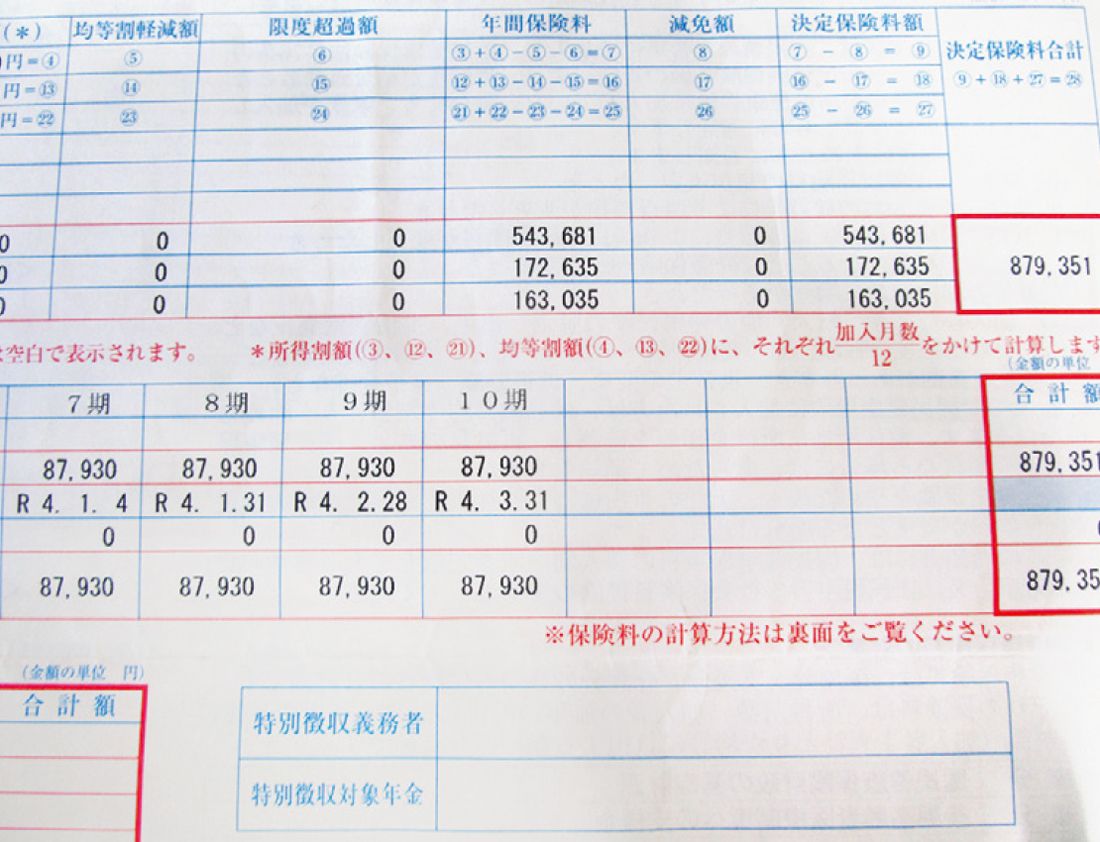 (*) 均等割軽減額 限度超過額 年間保険料 減免額 決定保険料額 決定保険料合計
円=④ ⑤ ⑥ ③+④-⑤-⑥=⑦ ⑧ ⑦ - ⑧ = ⑨ ⑨+⑱+㉗=㉘
円=⑬ ⑭ ⑮ ⑫+⑬-⑭-⑮=⑯ ⑰ ⑯ - ⑰ = ⑱
円=㉒ ㉓ ㉔ ㉑+㉒-㉓-㉔=㉕ ㉖ ㉕ - ㉖ = ㉗
0 0 0 543,681 0 543,681
0 0 0 172,635 0 172,635 879,351
0 0 0 163,035 0 163,035
空白で表示されます。 *所得割額(③、⑫、㉑)、均等割額(④、⑬、㉒)に、それぞれ加入月数/12をかけて計算します
(金額の単位
7期 8期 9期 10期 合計額
87,930 87,930 87,930 87,930 879,351
R 4. 1. 4 R 4. 1.31 R 4. 2.28 R 4. 3.31
0 0 0 0
87,930 87,930 87,930 87,930 879,35
※保険料の計算方法は裏面をご覧ください。
(金額の単位 円)
合計額
特別徴収義務者
特別徴収対象年金